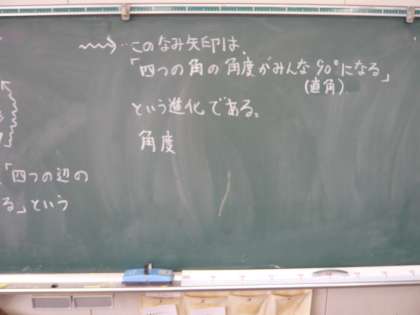 このなみ矢印は、
「四つの角の角度がみんな90°になる」
(直角)
という進化である。
角度
「四つの辺の
る」という